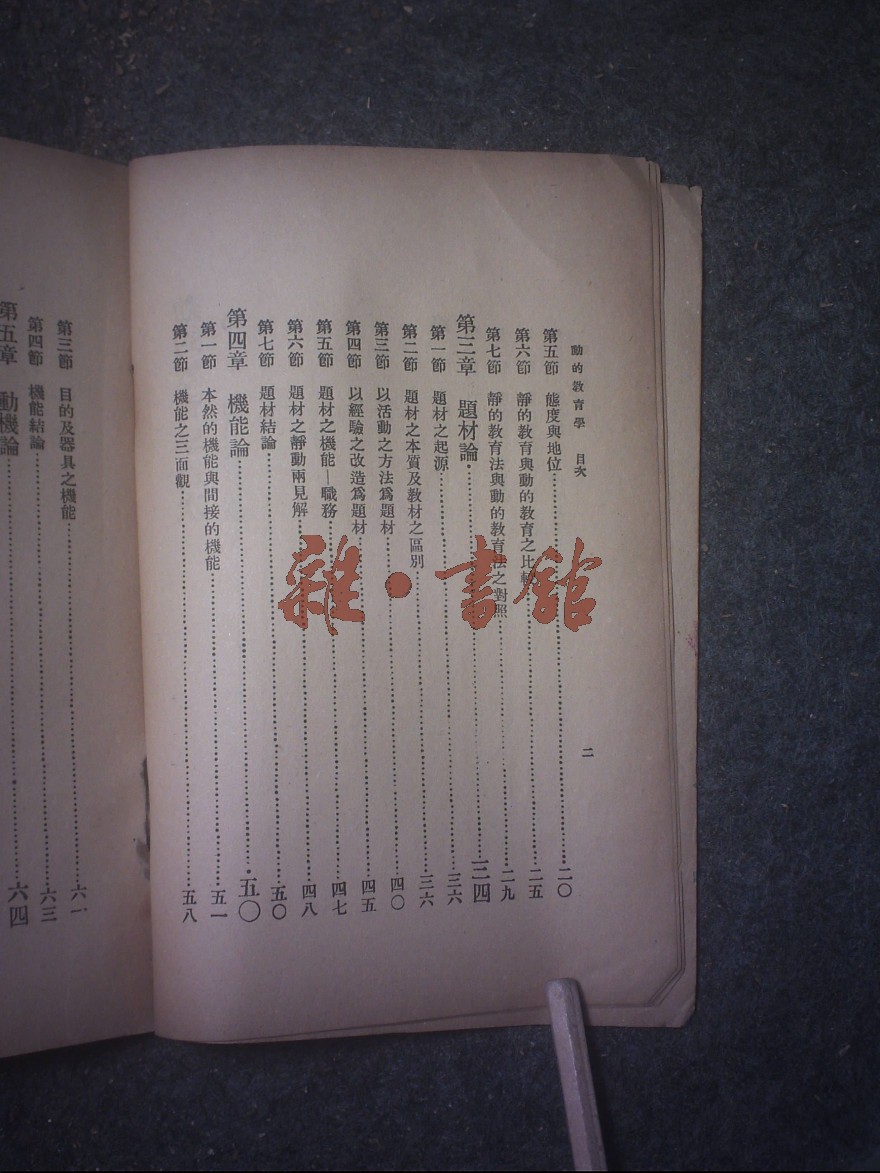 動的教育學 目次 二
第五節 態度與地位 二〇
第六節 靜的教育與動的教育之比較 二五
第七節 靜的教育法與動的教育法之對照 二九
第三章 題材論 三四
第一節 題材之起源 三六
第二節 題材之本質及教材之區別 三六
第三節 以活動之方法爲題材 四〇
第四節 以經驗之改造爲題材 四五
第五節 題材之機能—職務 四七
第六節 題材之靜動兩見解 四八
第七節 題材結論 五〇
第四章 機能論 五〇
第一節 本然的機能與間接的機能 五一
第二節 機能之三面觀 五八
第三節 目的及器具之機能 六一
第四節 機能結論 六三
第五章 動機論 六四
雜·書館